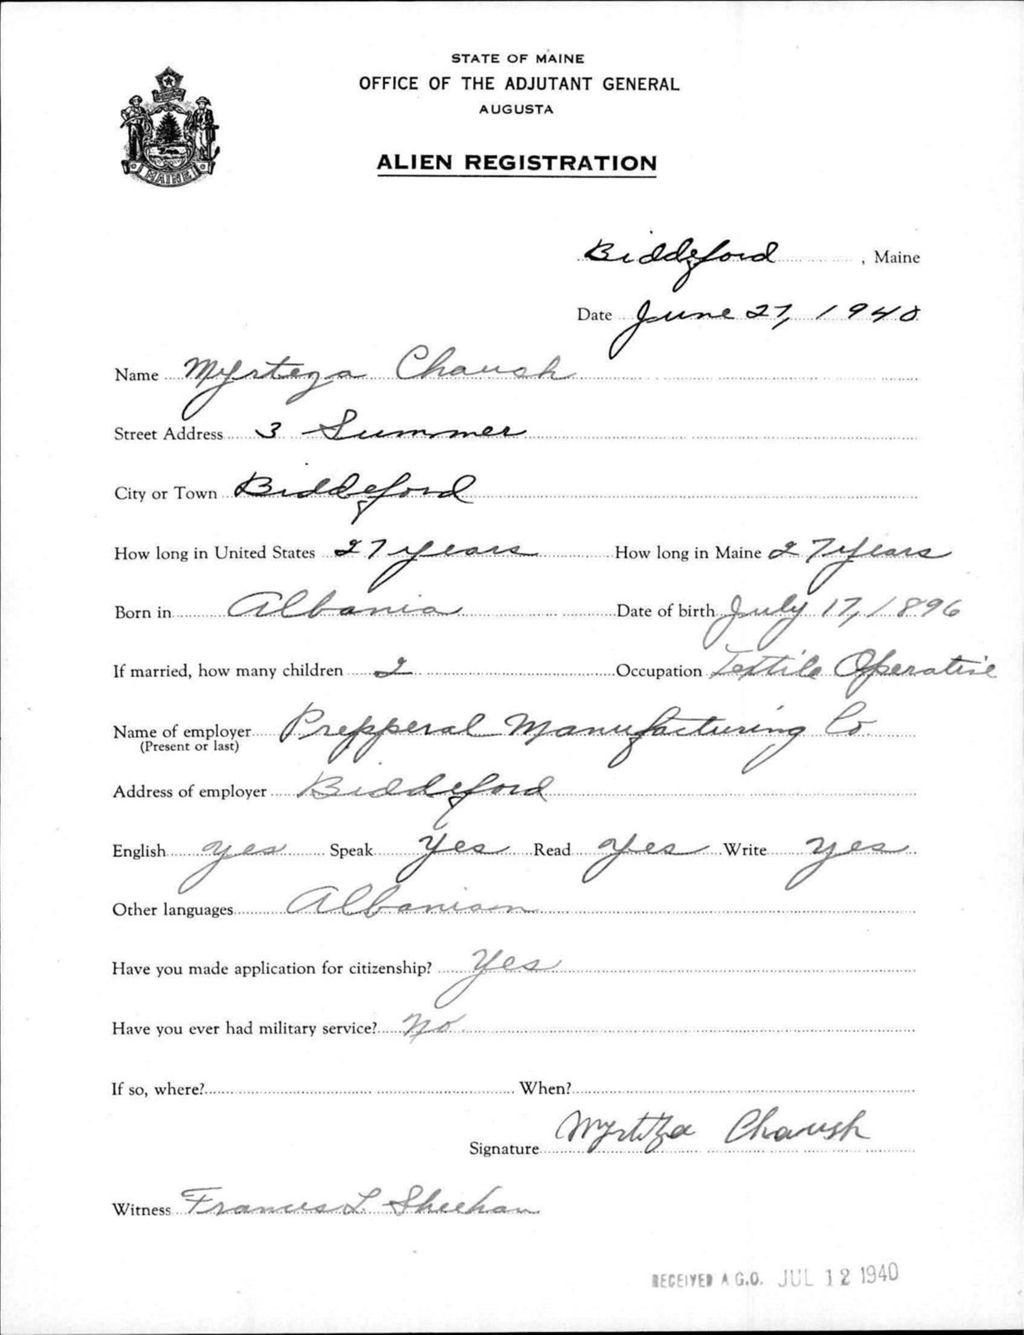 STATE OF MAINE
OFFICE OF THE ADJUTANT GENERAL
AUGUSTA
ALIEN REGISTRATION
MAINE
Biddeford, Maine
Date June 27, 1940
Name Myrteza Chaush
Street Address 3 Summer
City or Town Biddeford
How long in United States 27 years How long in Maine 27 years
Born in Albania Date of birth July 17, 1896
If married, how many children 2 Occupation Textile Operative
Name of employer Prepperal Manufacturing Co.
(Present or last)
Address of employer Biddeford
English yes Speak yes Read yes Write yes
Other languages Albanian
Have you made application for citizenship? Yes
Have you ever had military service? No
If so, where? When?
Signature Myrteza Chaush
Witness Francis L. Sheehan
RECEIVED A.G.O. JUL 12 1940